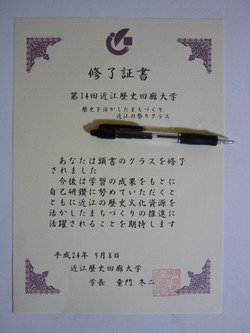 修了証書
第14回近江歴史回廊大学
歴史を活かしたまちづくり
近江の祭りクラス
あなたは頭書のクラスを修了
されました
今後は学習の成果をもとに
自己研鑽に努めていただくと
ともに近江の歴史文化資源を
活かしたまちづくりの推進に
活躍されることを期待します
平成24年 9月8日
近江歴史回廊大学
学長 童門 冬二